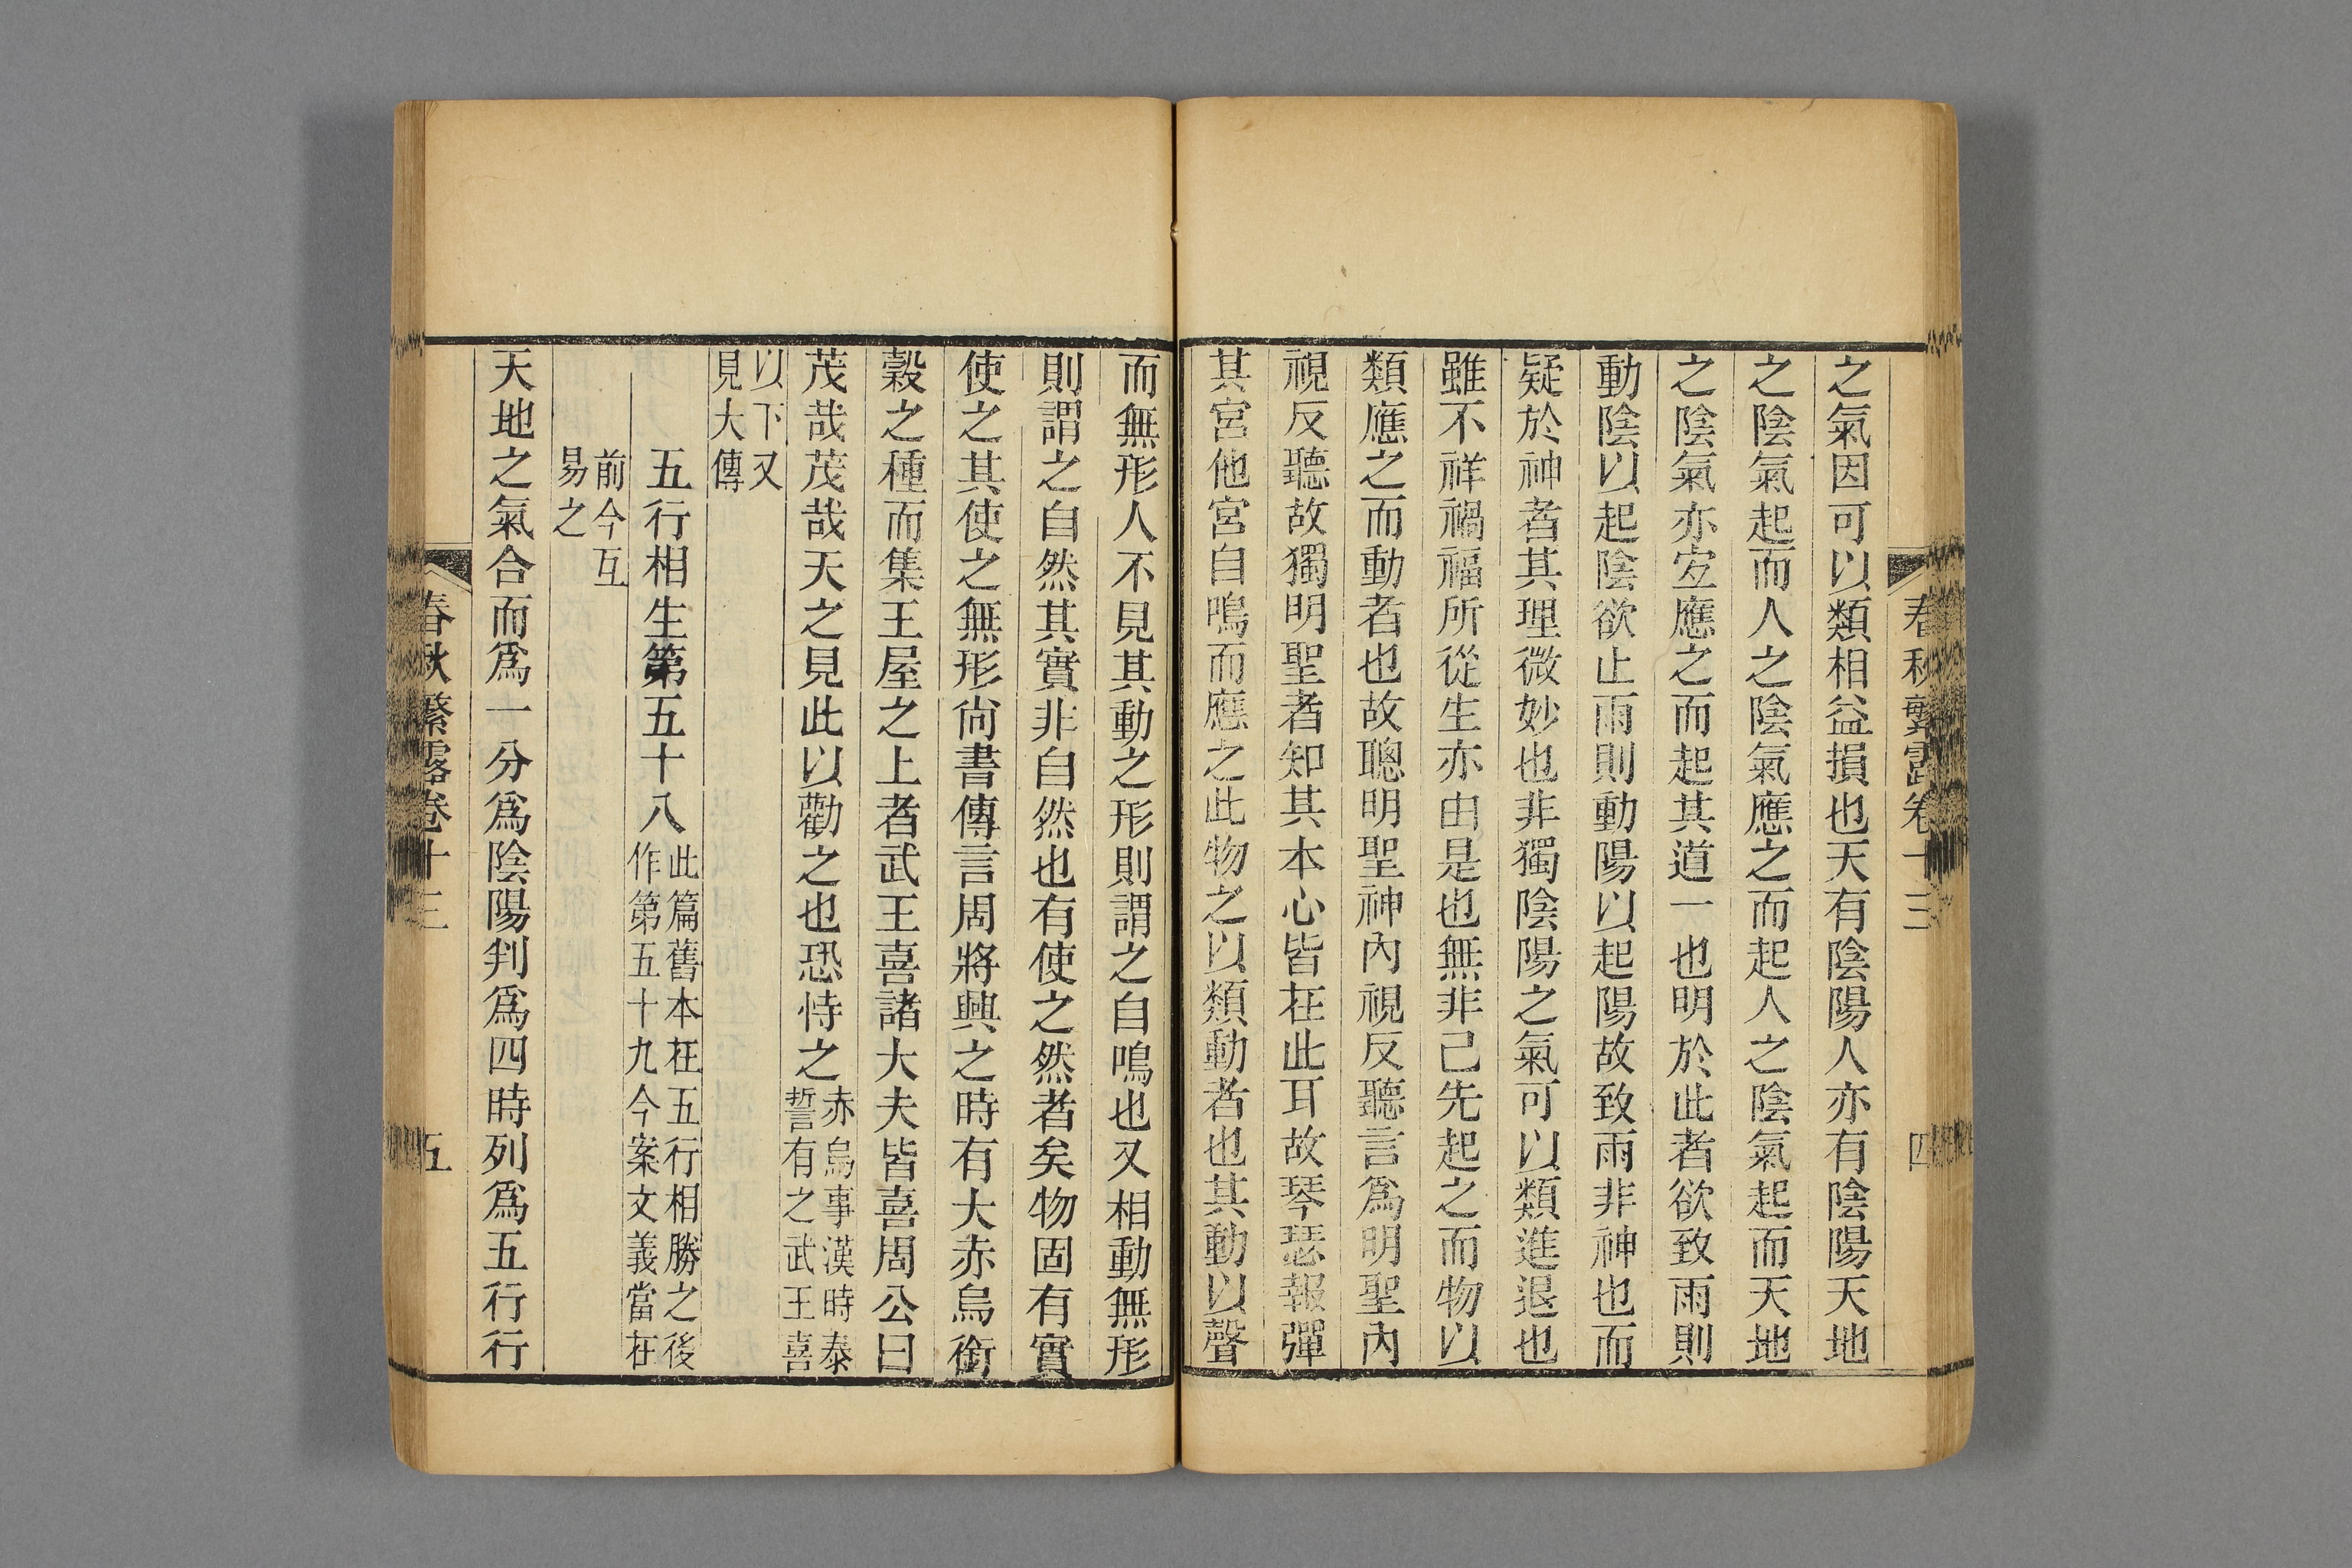 春秋繁露卷十三
四
之氣因可以類相益損也天有陰陽人亦有陰陽天地
之陰氣起而人之陰氣應之而起人之陰氣起而天地
之陰氣亦宐應之而起其道一也明於此者欲致雨則
動陰以起陰欲止雨則動陽以起陽故致雨非神也而
疑於神者其理微妙也非獨陰陽之氣可以類進退也
雖不祥禍福所從生亦由是也無非己先起之而物以
類應之而動者也故聰明聖神內視反聽言爲明聖內
視反聽故獨明聖者知其本心皆在此耳故琴瑟報彈
其宮他宮自鳴而應之此物之以類動者也其動以聲
而無形人不見其動之形則謂之自鳴也又相動無形
則謂之自然其實非自然也有使之然者矣物固有實
使之其使之無形尙書傳言周將興之時有大赤烏銜
穀之種而集王屋之上者武王喜諸大夫皆喜周公曰
茂哉茂哉天之見此以勸之也恐恃之
赤烏事漢時泰
誓有之武王喜
以下又
見大傳
五行相生第五十八
此篇舊本在五行相勝之後
作第五十九今案文義當在
前今互
易之
天地之氣合而爲一分爲陰陽判爲四時列爲五行行
春秋繁露卷十三
五